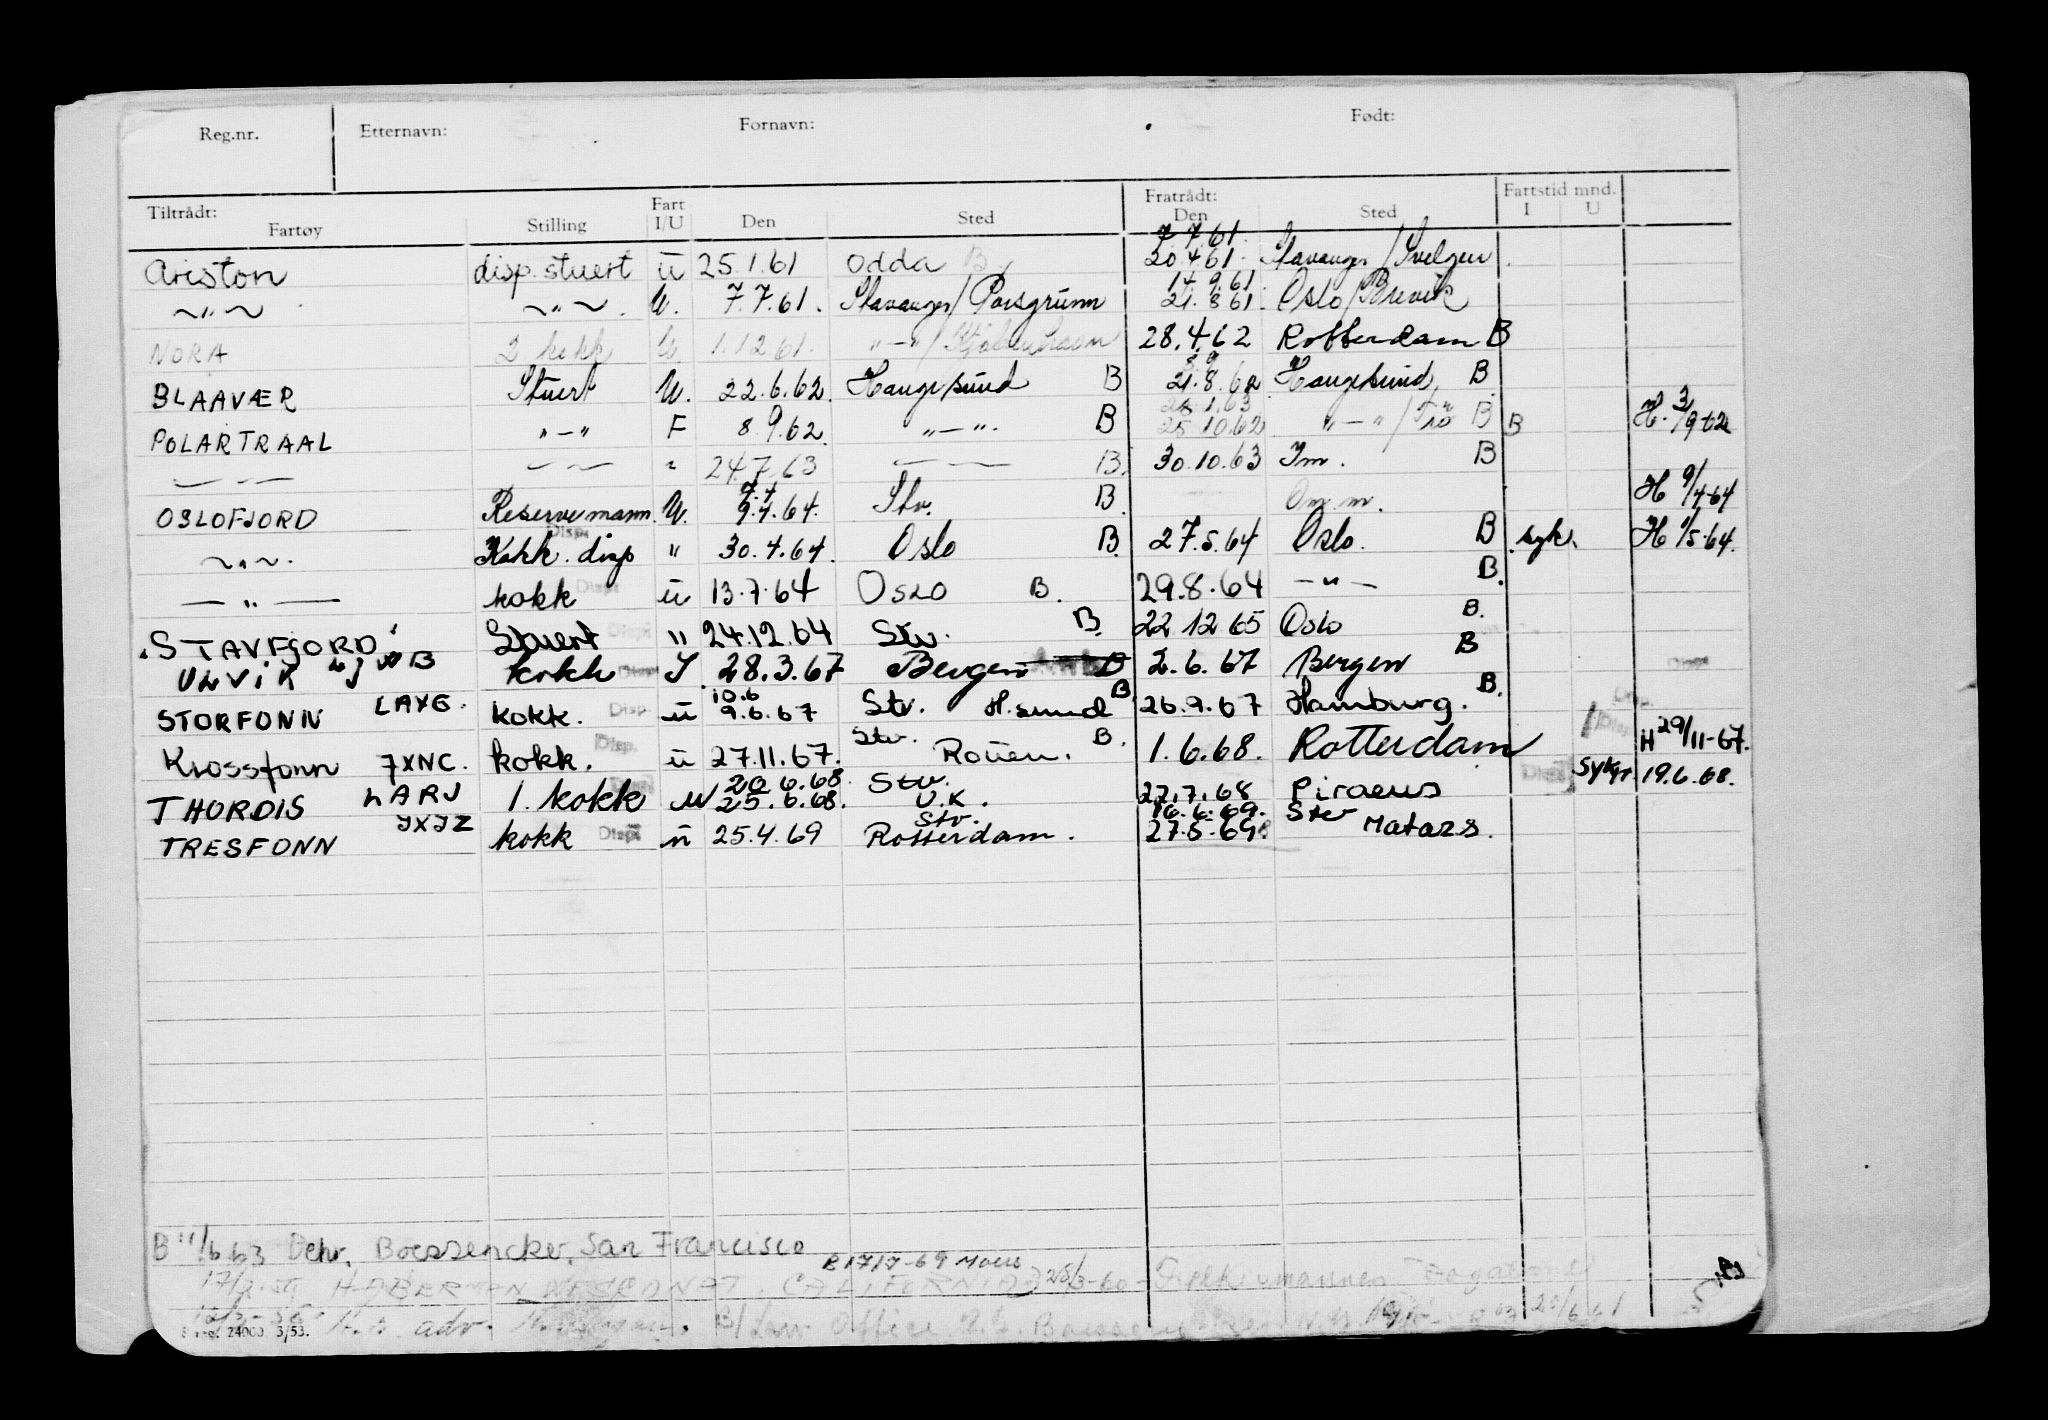 Reg.nr. Etternavn: Fornavn: Født:
Tiltrådt: Fratrådt: Fartstid mnd.
Fartøy Stilling Fart I/U Den Sted Den Sted I U
7.7.61.
Ariston disp. stuert ū 25.1.61 Odda B 20.4.61. Stavanger/Svelgen
14.9.61.
~"~ ~"~ U. 7.7.61. Stavanger/Porsgrunn 21.8.61. Oslo/Brevik
NORA 2 kokk U 1.12.61. "-"/Kjøbenhavn 28.4.62 Rotterdam B
BLAAVÆR Stuert U. 22.6.62. Haugesund B 21.8.62 Haugesund B
28.1.63
POLARTRAAL "-" F 8.9.62. "-". B 25.10.62 "-"/ B B H. 3/9-62
24.7.63 B. 30.10.63 Im. B
OSLOFJORD Reservemann. U. 9.4.64. Stv. B Om.m. H 9/4-64
~"~. Kokk disp " 30.4.64. Oslo B. 27.5.64 Oslo. B syk. H 1/5-64.
Disp.
— " — kokk Disp ū 13.7.64 Oslo B. 29.8.64 -"- B.
"STAVFJORD" Stuert Disp " 24.12.64 Stv. B. 22 12 65 Oslo B.
ULVIK kokk Disp I 28.3.67 Bergen B 2.6.67 Bergen B Disp
10.6
STORFONN LAXG. kokk. Disp. ū 9.6.67 Stv. H.sund B 26.9.67 Hamburg. B. Disp.
Krossfonn JXNC. kokk. Disp. ū 27.11.67. Stv. Rouen. B. 1.6.68. Rotterdam H 29/11-67.
20.6.68 Stv.
THORDIS LARJ 1. kokk U 25.6.68. U.K. 27.7.68 Piraeus Disp Sykr. 19.6.68.
Stv. 16.6.69. Stv
TRESFONN JXJZ kokk Disp ū 25.4.69 Rotterdam. 27.5.69. Matazs.
B 11/6.63 Dehr. Boessencker, San Francisco
B 17/7-69 Moers
17/2-59 HABERMAN CALIFORNIA 25/3-60 -
H.r. adv. B/Law Office 25/6.61
24000. 3/53.